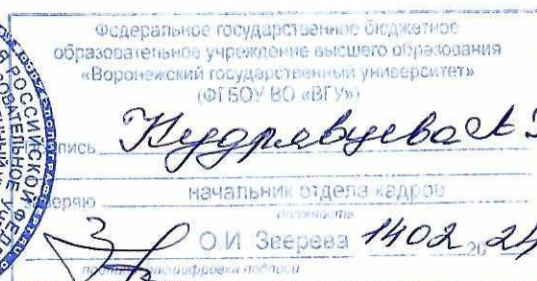 Федеральное государственное бюджетное
образовательное учреждение высшего образования
«Воронежский государственный университет»
(ФГБОУ ВО «ВГУ»)
пись Кудрявцева
еряю начальник отдела кадров
должность
О.И. Зверева 14 02 20 24
подпись расшифровка подписи
РОССИЙСКОЙ ФЕДЕ
ОВАТЕЛЬНОЕ УЧРЕЖД